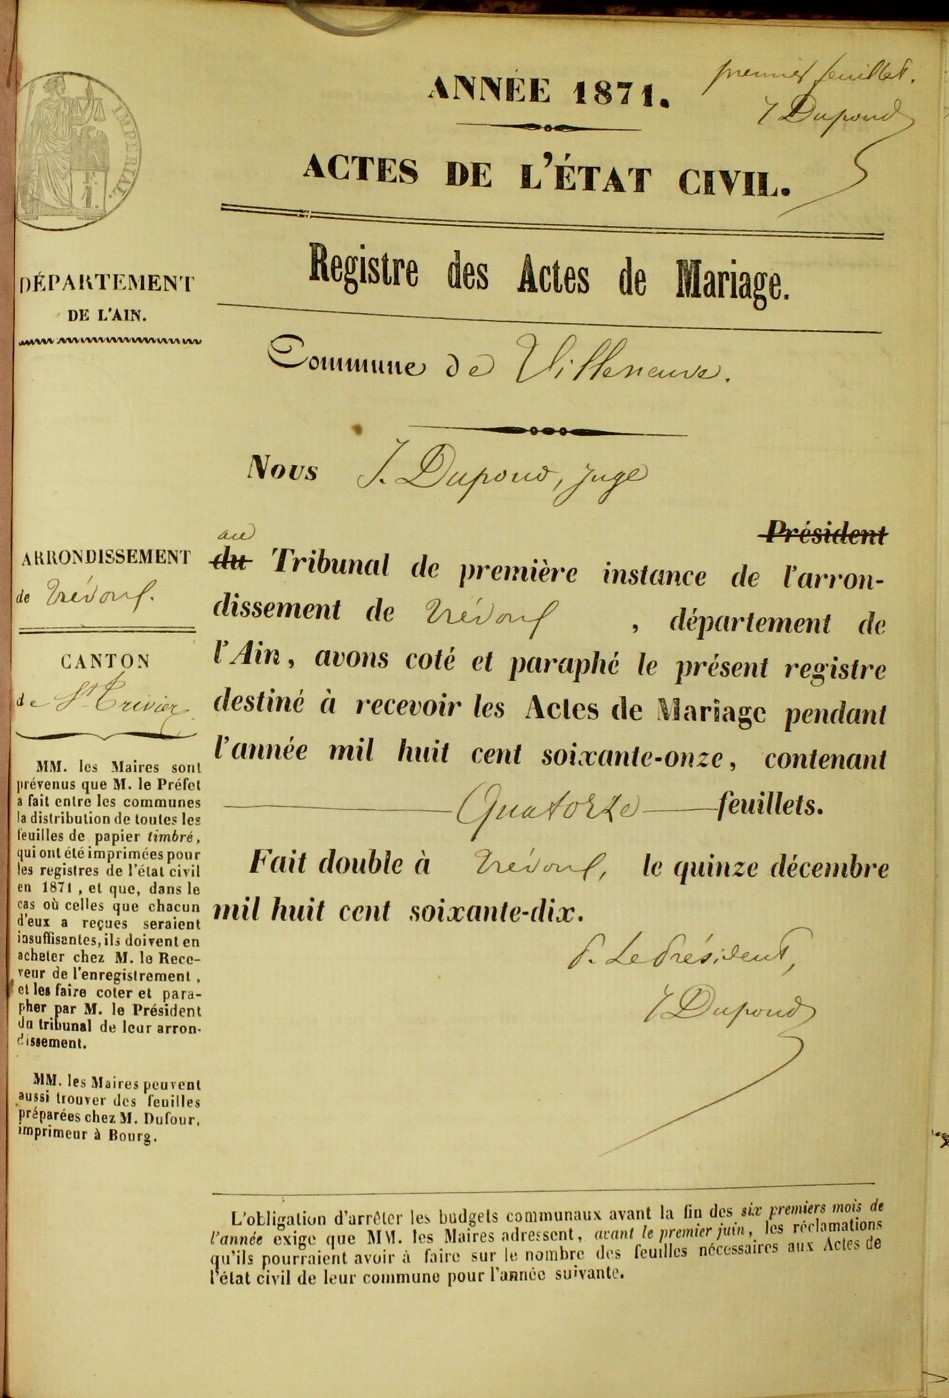 premier feuillet.
J Dupond
ANNÉE 1871.
ACTES DE L'ÉTAT CIVIL.
IMPÉRIAL.
DÉPARTEMENT
DE L'AIN.
Registre des Actes de Mariage.
Commune de Villeneuve.
Nous J. Dupond, juge
Président
au
du Tribunal de première instance de l'arron-
dissement de Trévoux, département de
l'Ain, avons coté et paraphé le présent registre
destiné à recevoir les Actes de Mariage pendant
l'année mil huit cent soixante-onze, contenant
Quatorze feuillets.
Fait double à Trévoux, le quinze décembre
mil huit cent soixante-dix.
P. Le Président,
J Dupond
ARRONDISSEMENT
de Trévoux.
CANTON
de St Trivier
MM. les Maires sont
prévenus que M. le Préfet
a fait entre les communes
la distribution de toutes les
feuilles de papier timbré,
qui ont été imprimées pour
les registres de l'état civil
en 1871, et que, dans le
cas où celles que chacun
d'eux a reçues seraient
insuffisantes, ils doivent en
acheter chez M. le Rece-
veur de l'enregistrement,
et les faire coter et para-
pher par M. le Président
du tribunal de leur arron-
dissement.
MM. les Maires peuvent
aussi trouver des feuilles
préparées chez M. Dufour,
imprimeur à Bourg.
L'obligation d'arrêter les budgets communaux avant la fin des six premiers mois de
l'année exige que MM. les Maires adressent, avant le premier juin, les réclamations
qu'ils pourraient avoir à faire sur le nombre des feuilles nécessaires aux Actes de
l'état civil de leur commune pour l'année suivante.